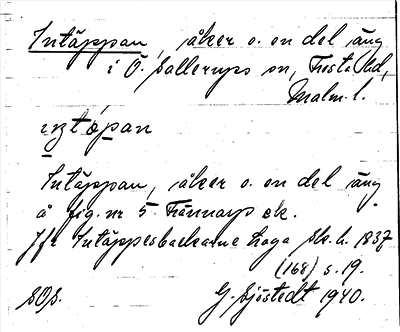 Intäppan, åker o. en del äng
i Ö. Sallerups sn, Frosta hd,
Malm. l.
Intäppan, åker o. en del äng
å fig. nr 5 Trännarp ek.
Jfr Intäppesbackarne Laga sk. h. 1837
(168) s. 19.
SOS. G. Sjöstedt 1940.